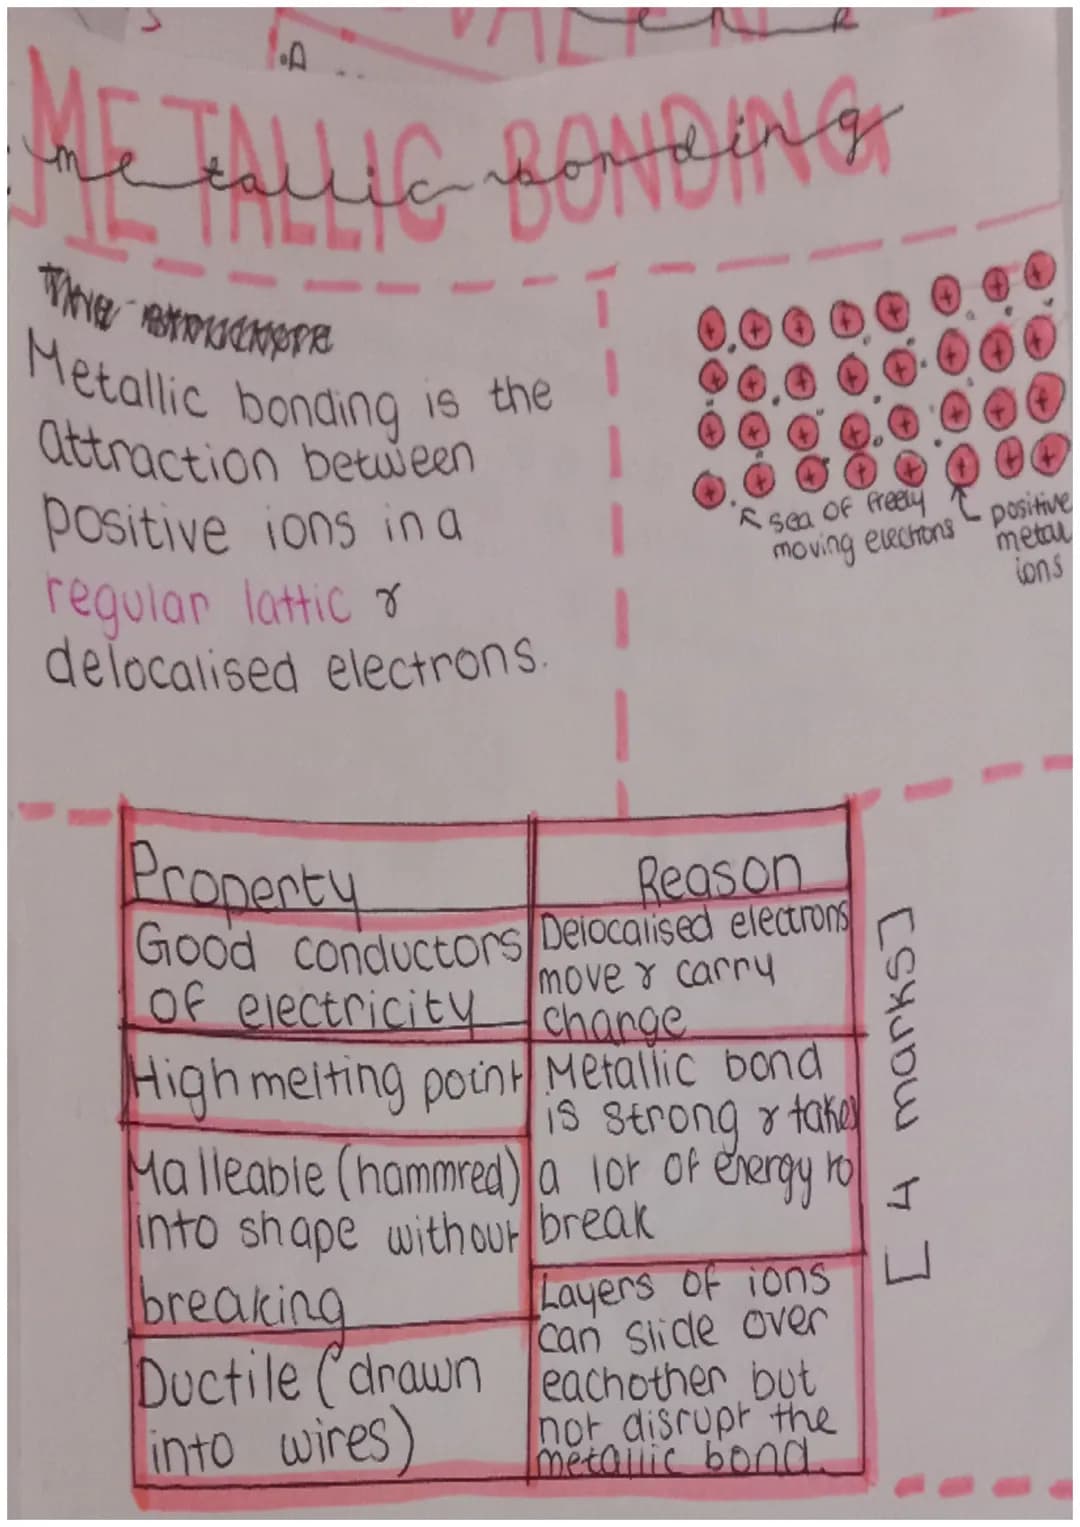 METALLIC BONDING
metallic bonding
Metallic bonding is the
attraction between
positive ions in a
regular lattic &
delocalised electrons.
sea of freely
moving electrons
positive
metal
ions
Property
Reason
Good conductors
of electricity
Delocalised electrons
move & carry
change
High melting point
Metallic bond
is strong & takes
a lot of energy to
break
Malleable (hammred)
into shape without
breaking
Ductile (drawn
into wires)
Layers of ions
can slide over
eachother but
not disrupt the
metallic bond.
[4 marks]